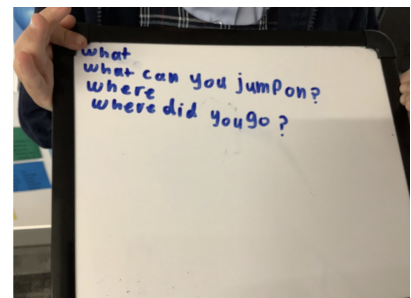 what
what can you jumpon?
where
where did yougo?